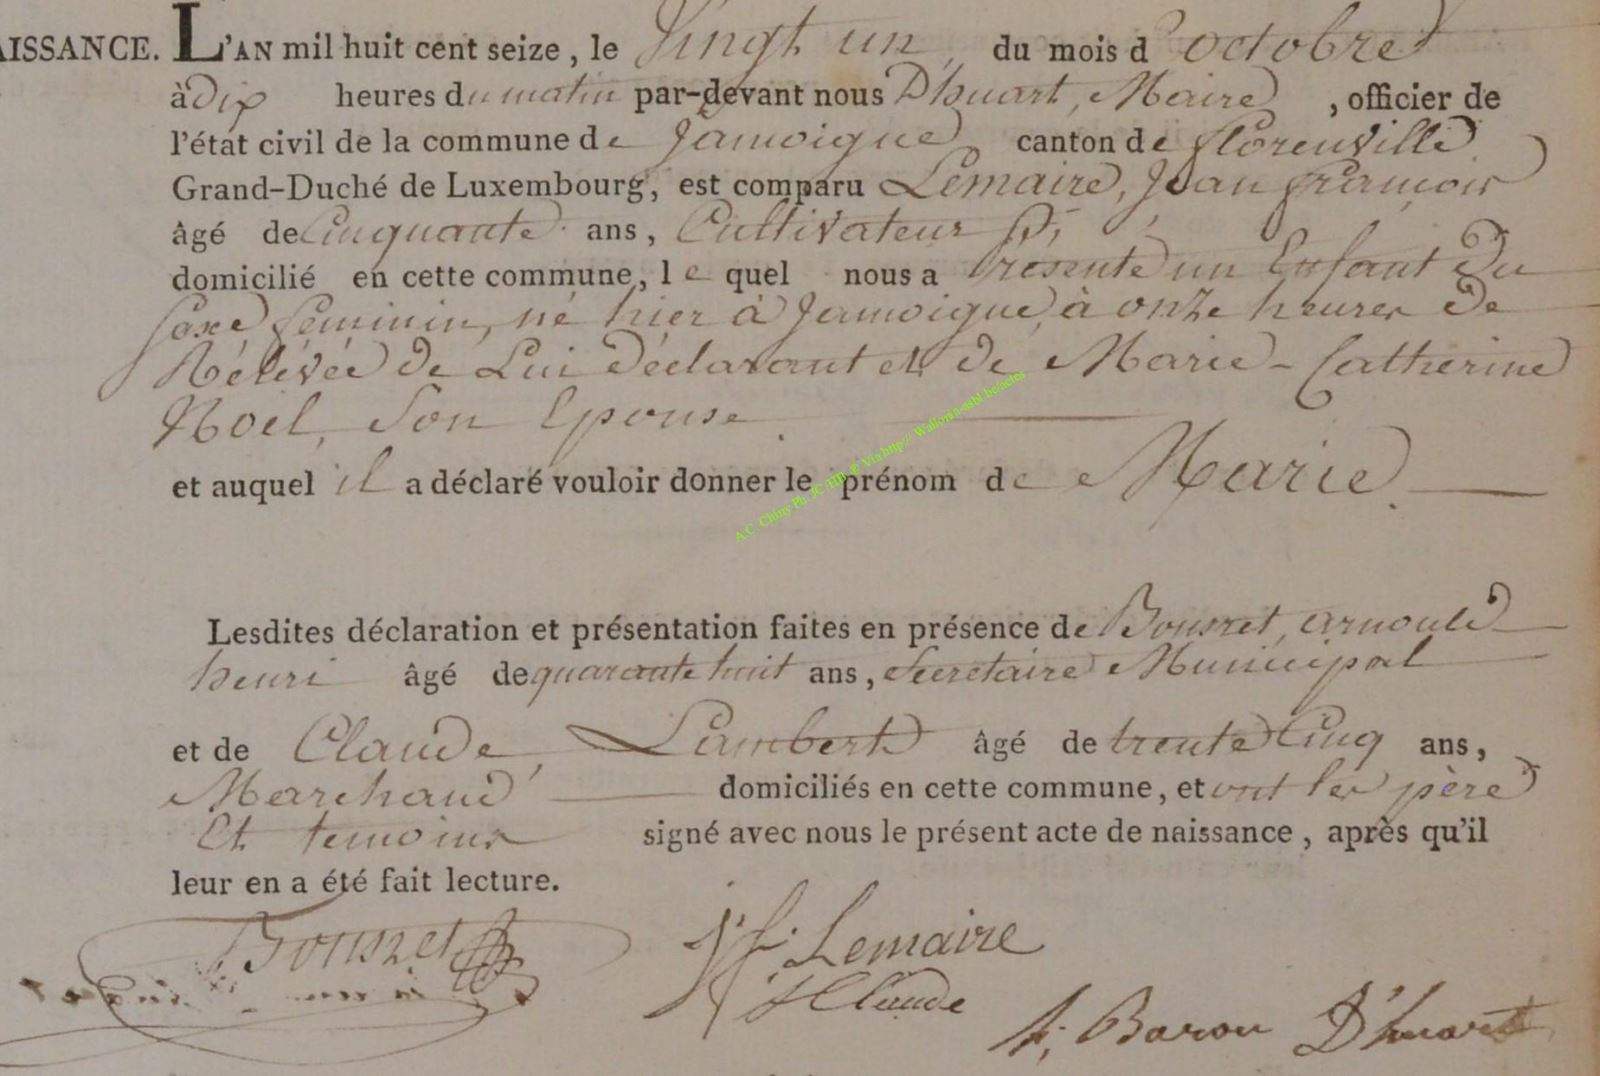 AISSANCE. L'AN mil huit cent seize, le Vingt un du mois d'octobre
à dix heures du matin par-devant nous D'huart, Maire, officier de
l'état civil de la commune de Jamoigne canton de florenville
Grand-Duché de Luxembourg, est comparu Lemaire, Jean françois
âgé de Cinquante ans, Cultivateur
domicilié en cette commune, le quel nous a Presenté un Enfant du
Sexe feminin, né hier à Jamoigne, à onze heures de
Rélévée de Lui déclarant et de Marie-Catherine
Noël, Son Epouse
et auquel il a déclaré vouloir donner le prénom de Marie
A.C. Chiny Ph. JC-HB © Via http:// Wallonia-asbl.be/actes
Lesdites déclaration et présentation faites en présence de Bousret, arnould
henri âgé de quarante huit ans, Secretaire Municipal
et de Claude, Lambert âgé de trente Cinq ans,
Marchand domiciliés en cette commune, et ont les père
Et temoins signé avec nous le présent acte de naissance, après qu'il
leur en a été fait lecture.
Bousret J f. Lemaire
L Claude
h. Baron D'huart